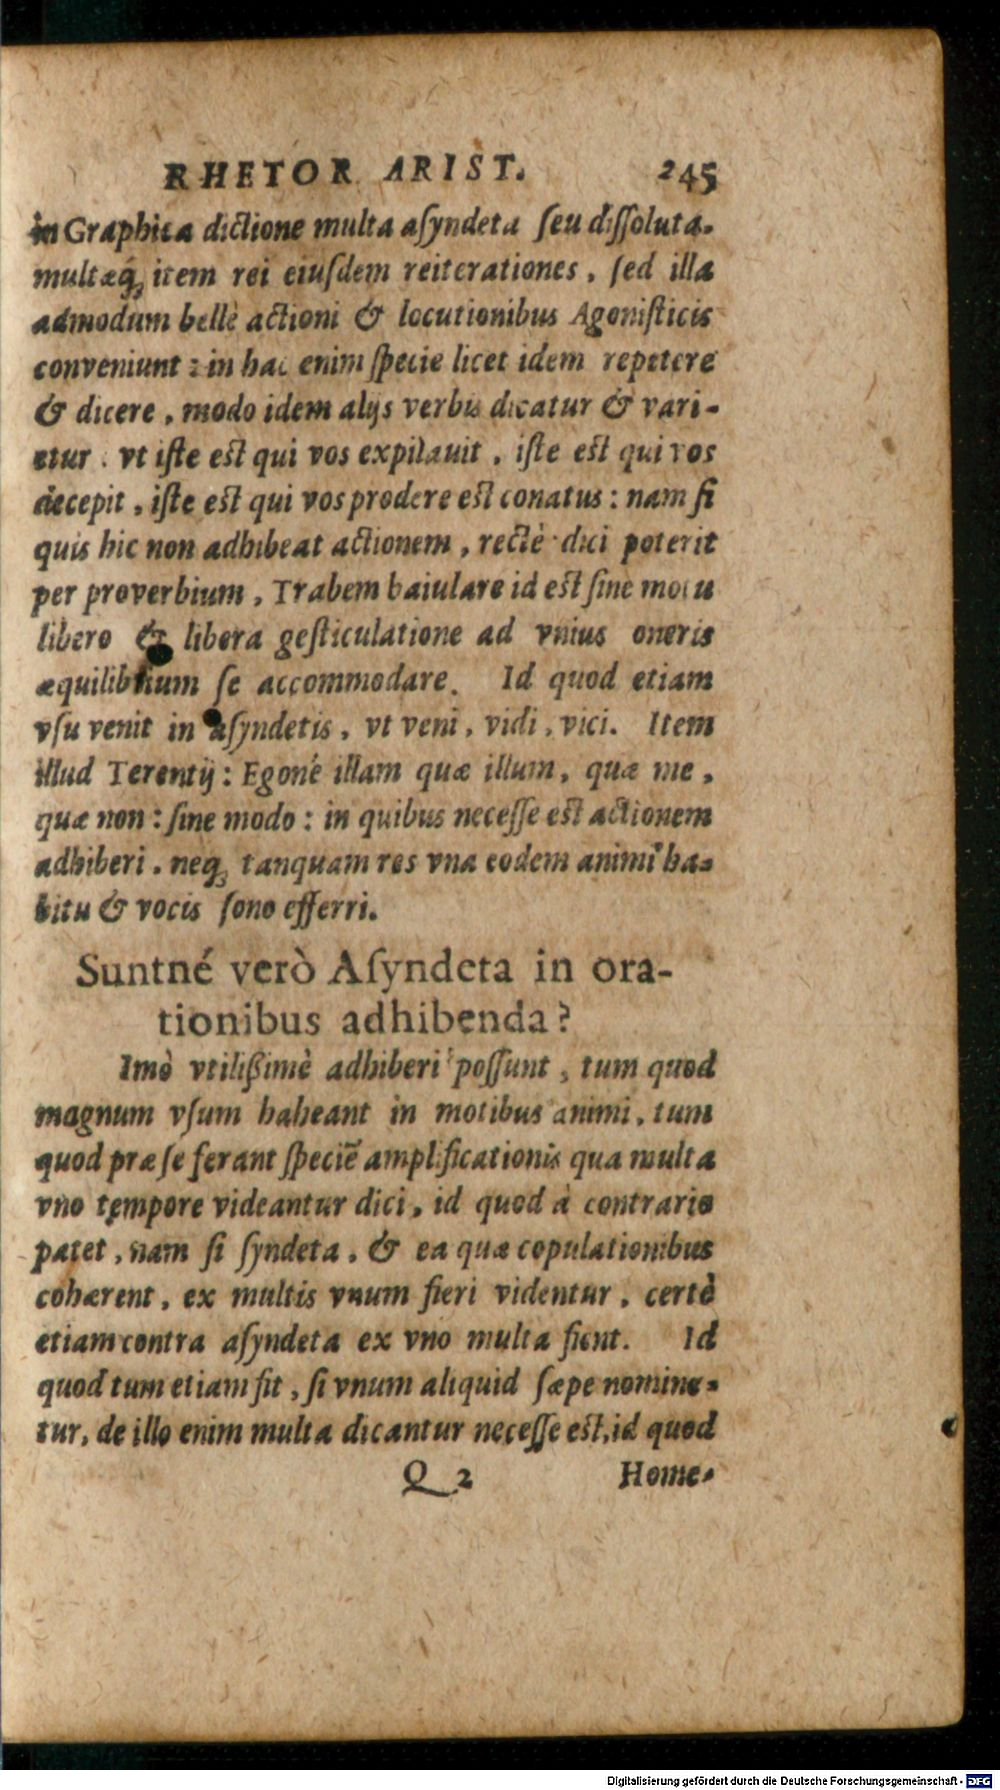 RHETOR ARIST. 245
in Graphica dictione multa aſyndeta ſeu diſſoluta.
multæq́ꝫ item rei eiuſdem reiterationes, ſed illa
admodum bellè actioni & locutionibus Agoniſticis
conveniunt : in hac enim ſpecie licet idem repetere
& dicere, modo idem alijs verbis dicatur & vari-
etur. vt iſte eſt qui vos expilauit, iſte eſt qui vos
decepit, iſte eſt qui vos prodere eſt conatus: nam ſi
quis hic non adhibeat actionem, rectè dici poterit
per proverbium, Trabem baiulare id eſt ſine motu
libero & libera geſticulatione ad vnius oneris
æquilibrium ſe accommodare. Id quod etiam
vſu venit in aſyndetis, vt veni, vidi, vici. Item
illud Terentij: Egoné illam quæ illum, quæ me,
quæ non: ſine modo: in quibus neceſſe eſt actionem
adhiberi. neqꝫ tanquam res vna eodem animi ha-
bitu & vocis ſono efferri.
Suntné verò Aſyndeta in ora-
tionibus adhibenda?
Imò vtilißimè adhiberi poſſunt, tum quod
magnum vſum habeant in motibus animi, tum
quod præ ſe ferant ſpeciē amplificationis qua multa
vno tempore videantur dici, id quod à contrario
patet, nam ſi ſyndeta, & ea quæ copulationibus
cohærent, ex multis vnum fieri videntur, certè
etiam contra aſyndeta ex vno multa fient. Id
quod tum etiam fit, ſi vnum aliquid ſæpe nomine-
tur, de illo enim multa dicantur neceſſe eſt, id quod
Q 2 Home-
Digitalisierung gefördert durch die Deutsche Forschungsgemeinschaft - DFG